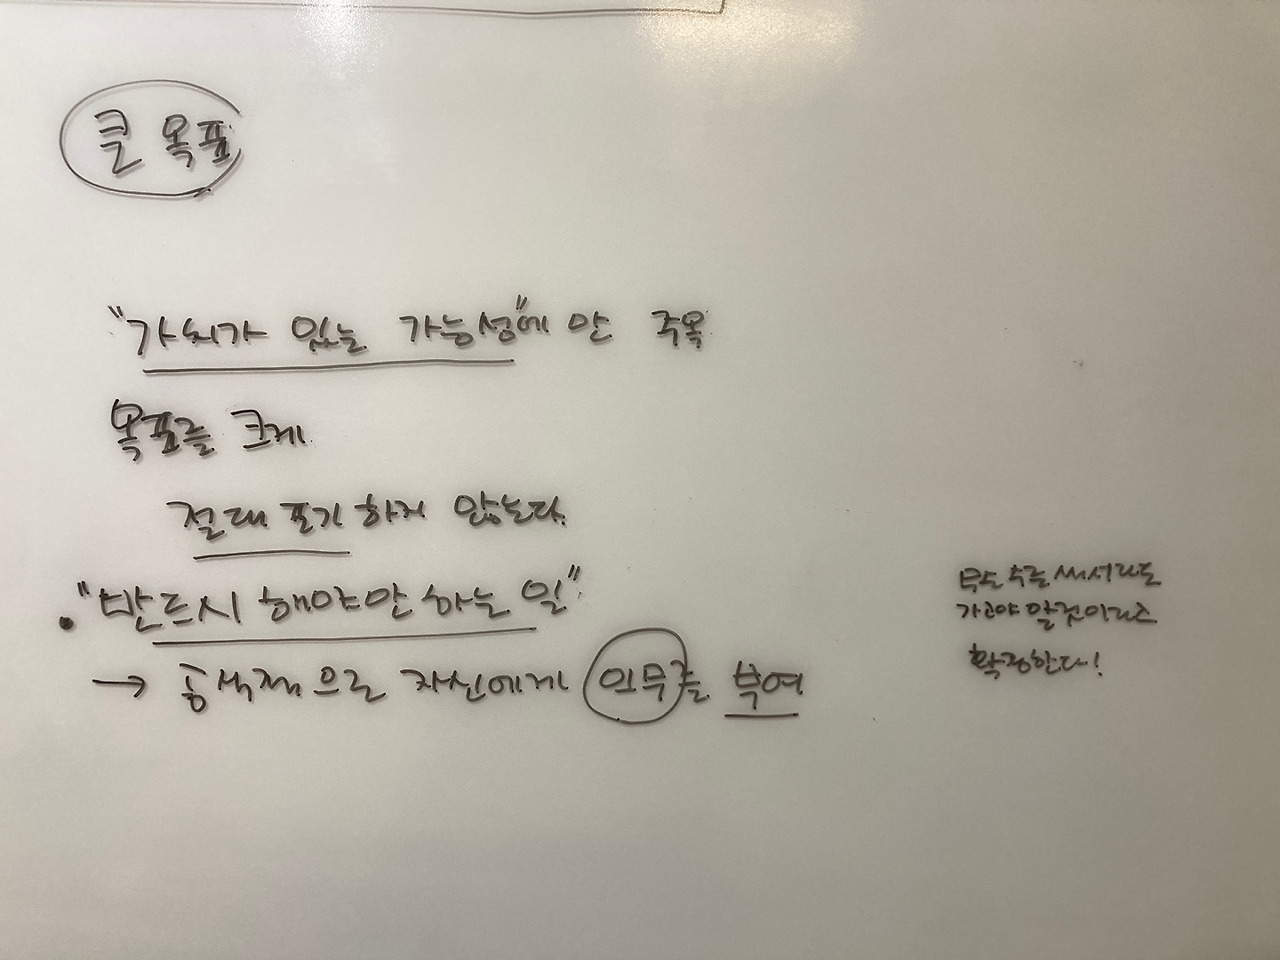 큰 목표
"가치가 있는 가능성"에만 주목
목표를 크게
절대 포기하지 않는다.
• "반드시 해야만 하는 일"
→ 공식적으로 자신에게 의무를 부여
무슨 수를 써서라도
가고야 말 것이라고
확정한다!